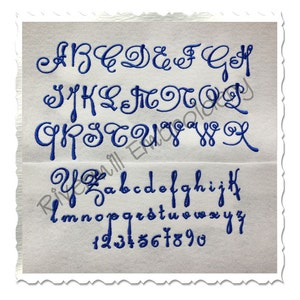 ABCDEFGH
IJKLMNOP
QRSTUVWX
YZabcdefghijk
lmnopqrstuvwxyz
1234567890
River Mill Embroidery